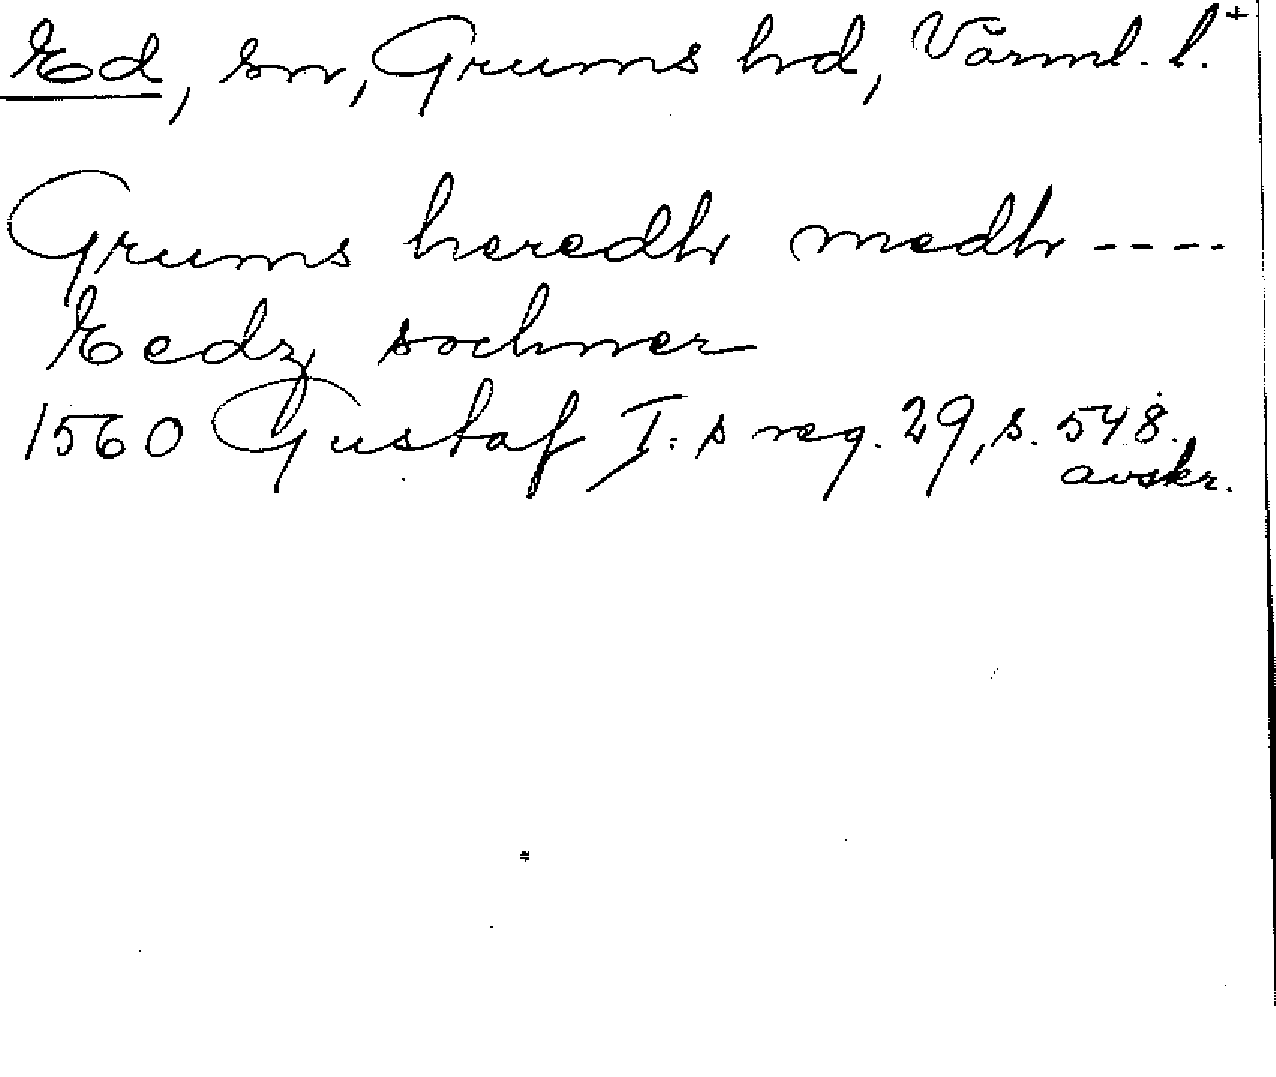 Ed, sn, Grums hd, Värml. l.+
Grums heredh medh ----
Eedz sochner
1560 Gustaf I:s reg. 29, s. 548.
avskr.